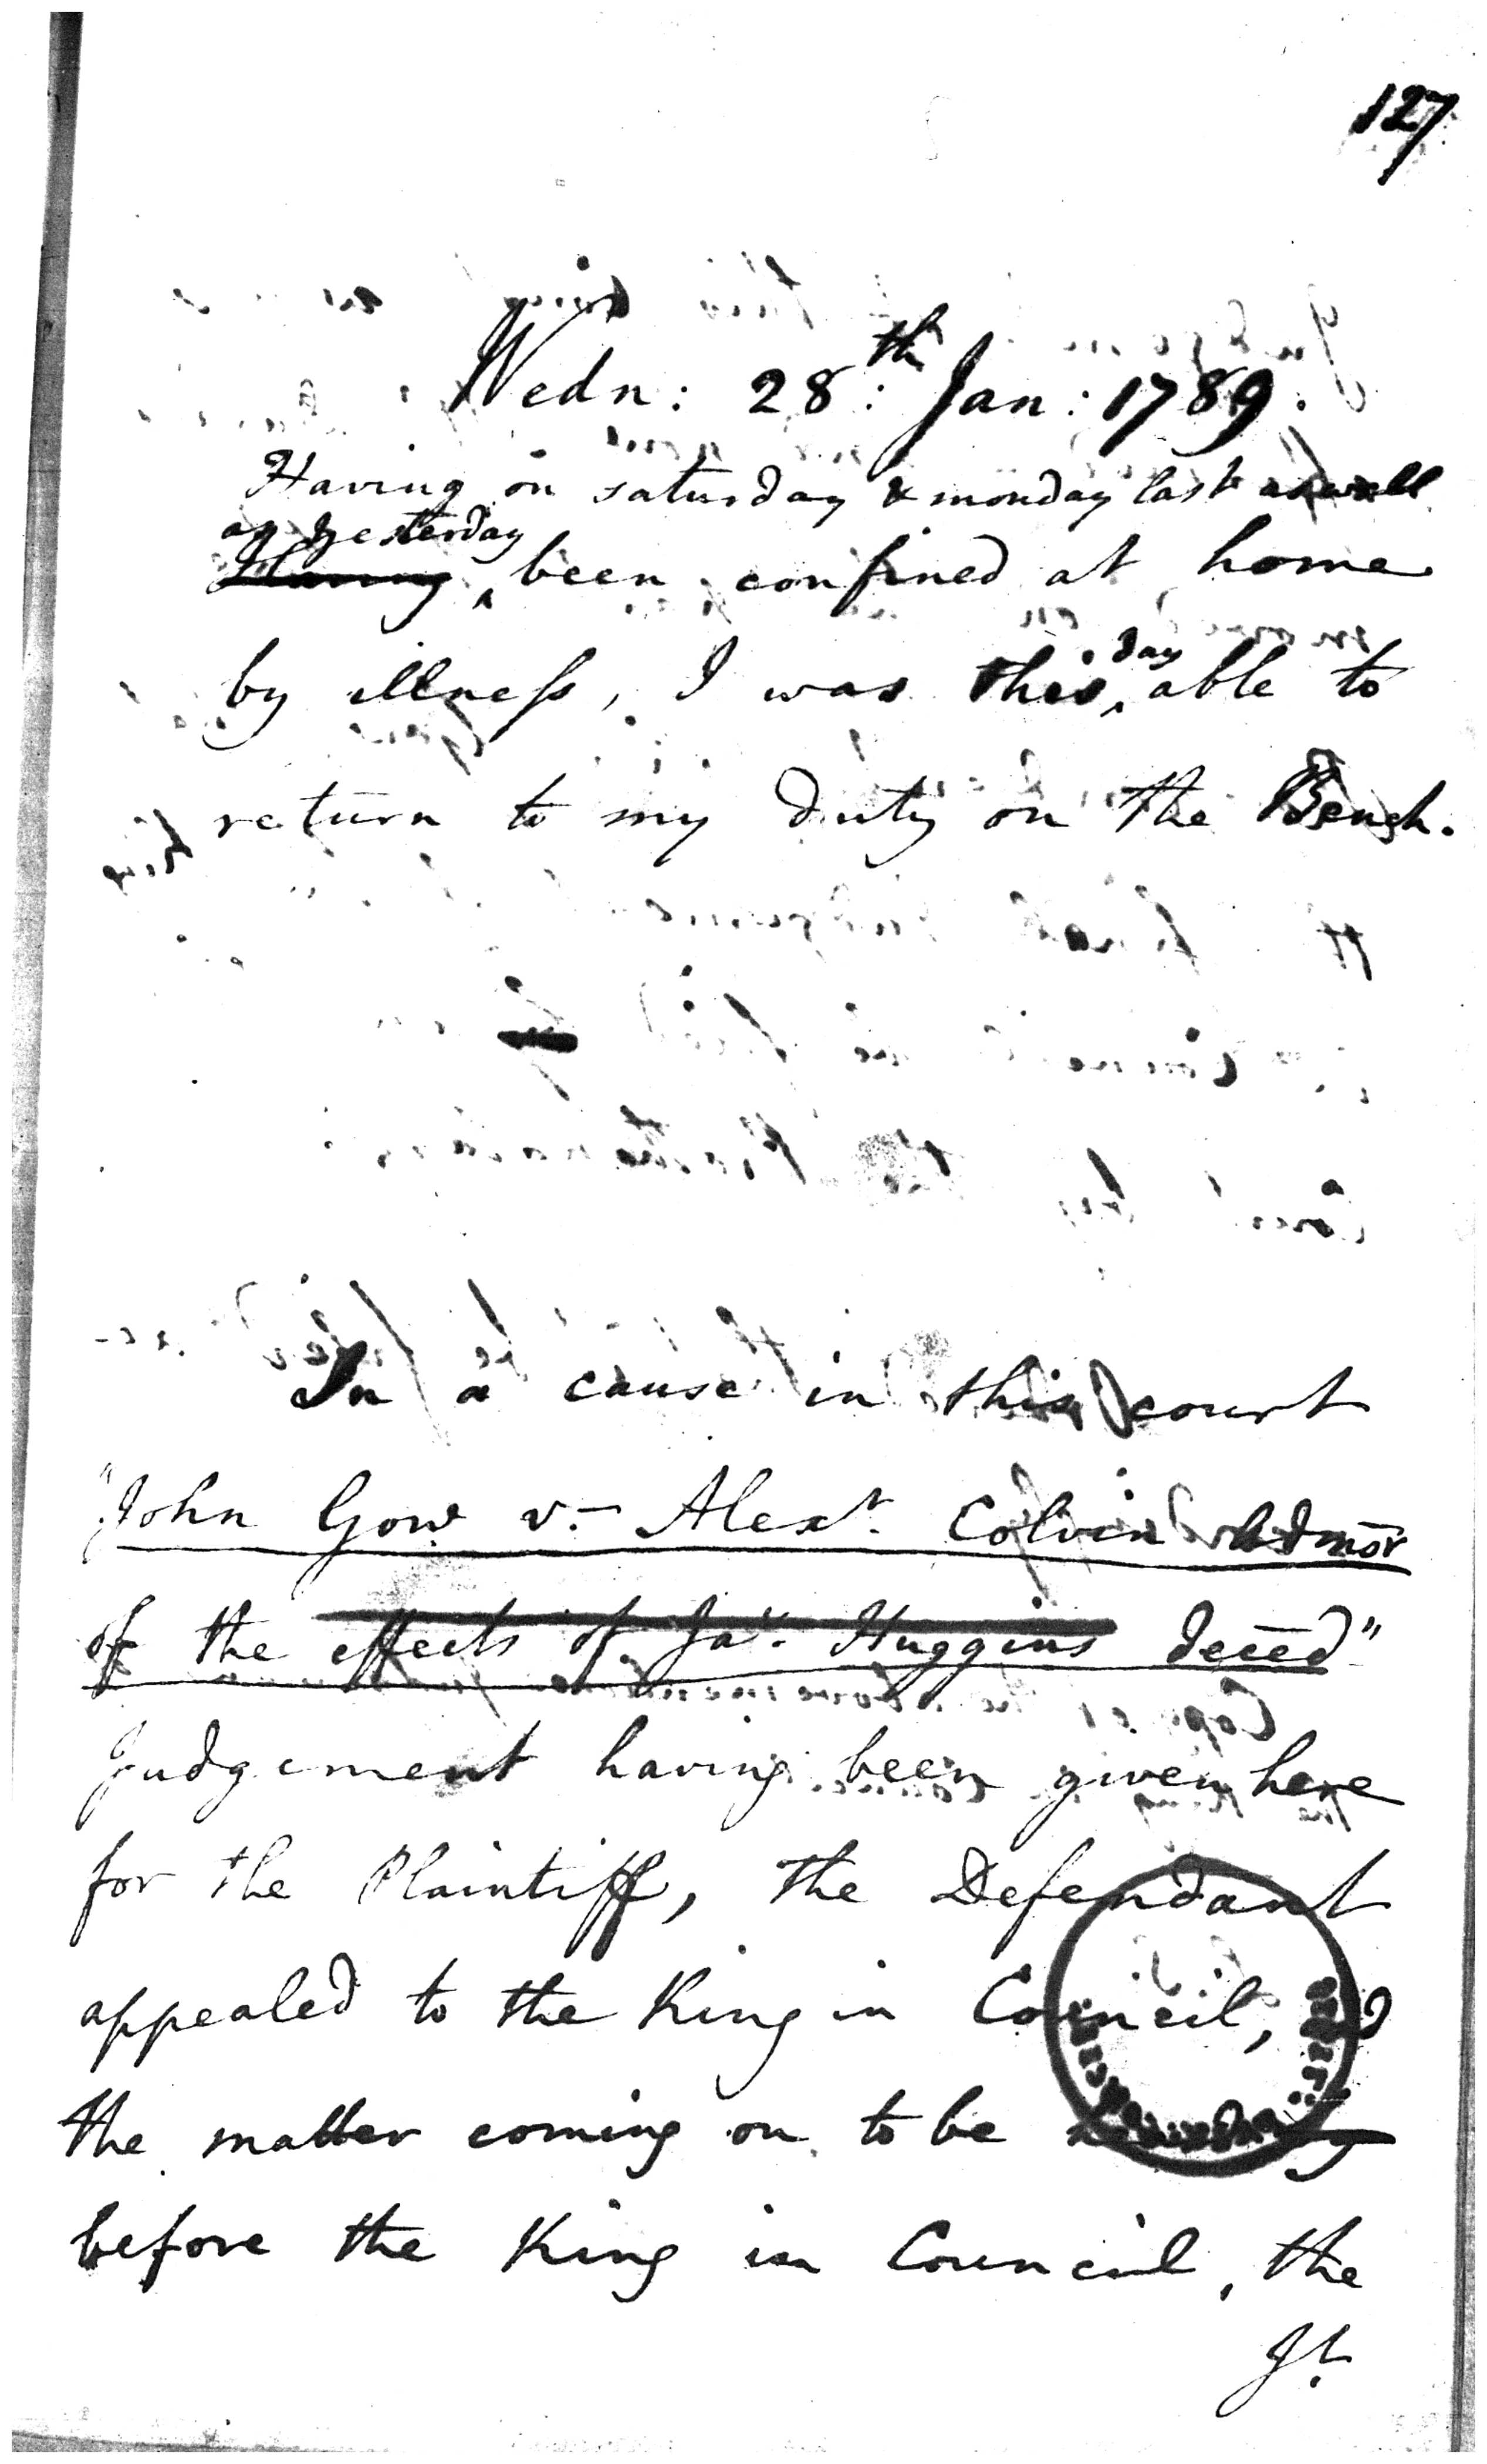 127
Wedn: 28:th Jan: 1789.
Having on saturday & monday last as well
as yesterday
Having, been confined at home
by illness, I was this day able to
return to my duty on the Bench.
In a cause in this court
"John Gow v. Alexr. Colvin Admōr
of the effects of Jas. Huggins decēd"
Judgement having been given here
for the Plaintiff, the Defendant
appealed to the King in Council, &
the matter coming on to be
before the King in Council, the
Jt.